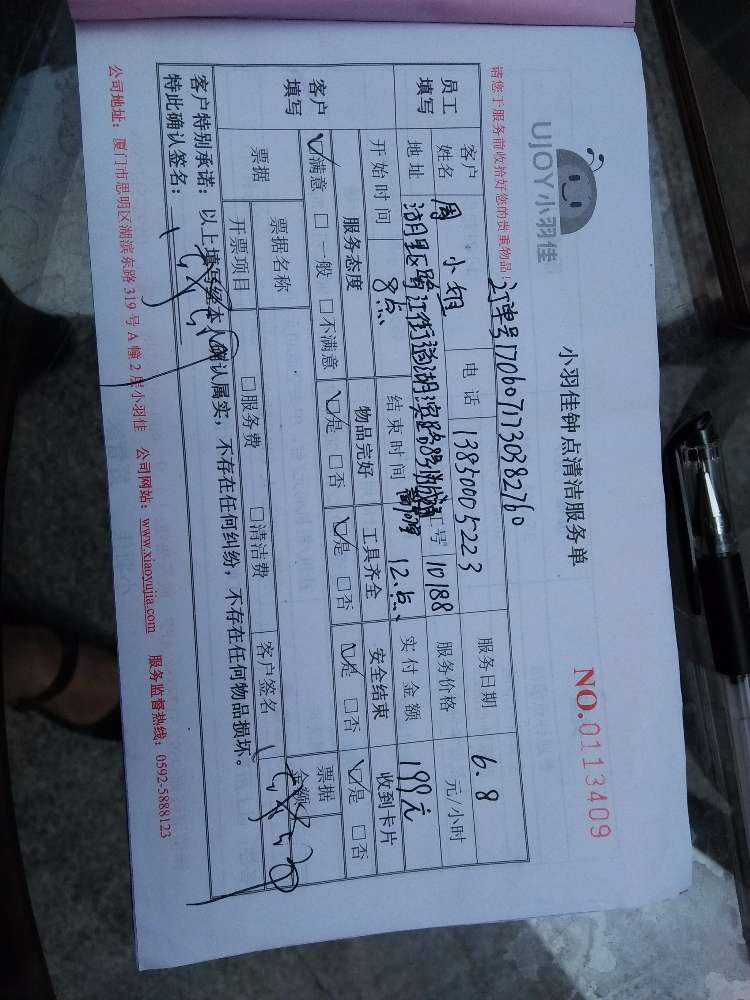 UJOY小羽佳
小羽佳钟点清洁服务单
NO.0113409
请您于服务前收拾好您的贵重物品！
订单号17060717730382760
员工填写 客户姓名 周小姐 电话 13850005223 服务日期 6.8
地址 湖里区 江街道湖滨 工号 10188 服务价格 元/小时
开始时间 8点 结束时间 12点 实付金额 199元
客户填写 服务态度 物品完好 工具齐全 安全结束 收到卡片
☑满意 □一般 □不满意 ☑是 □否 ☑是 □否 ☑是 □否 ☑是 □否
票据 票据名称 票据金额
开票项目 □服务费 □清洁费 客户签名
客户特别承诺：以上填写经本人确认属实，不存在任何纠纷，不存在任何物品损坏。
特此确认签名：
公司地址：厦门市思明区湖滨东路319号A幢2层小羽佳 公司网站：www.xiaoyujia.com 服务监督热线：0592-5888123